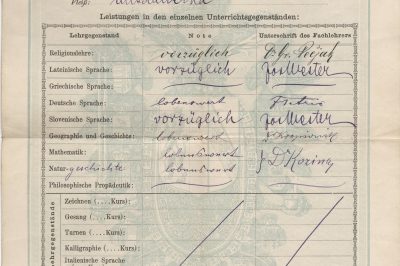 Leistungen in den einzelnen Unterrichtsgegenständen:
Lehrgegenstand Note Unterschrift des Fachlehrers
Religionslehre: vorzüglich
Lateinische Sprache: vorzüglich Jos Wester
Griechische Sprache:
Deutsche Sprache: lobenswert
Slovenische Sprache: vorzüglich Jos Wester
Geographie und Geschichte: lobenswert
Mathematik: lobenswert
Naturgeschichte lobenswert
Philosophische Propädeutik:
Lehrgegenstände
Zeichnen (....Kurs):
Gesang (....Kurs):
Turnen (....Kurs):
Kalligraphie (....Kurs):
Italienische Sprache